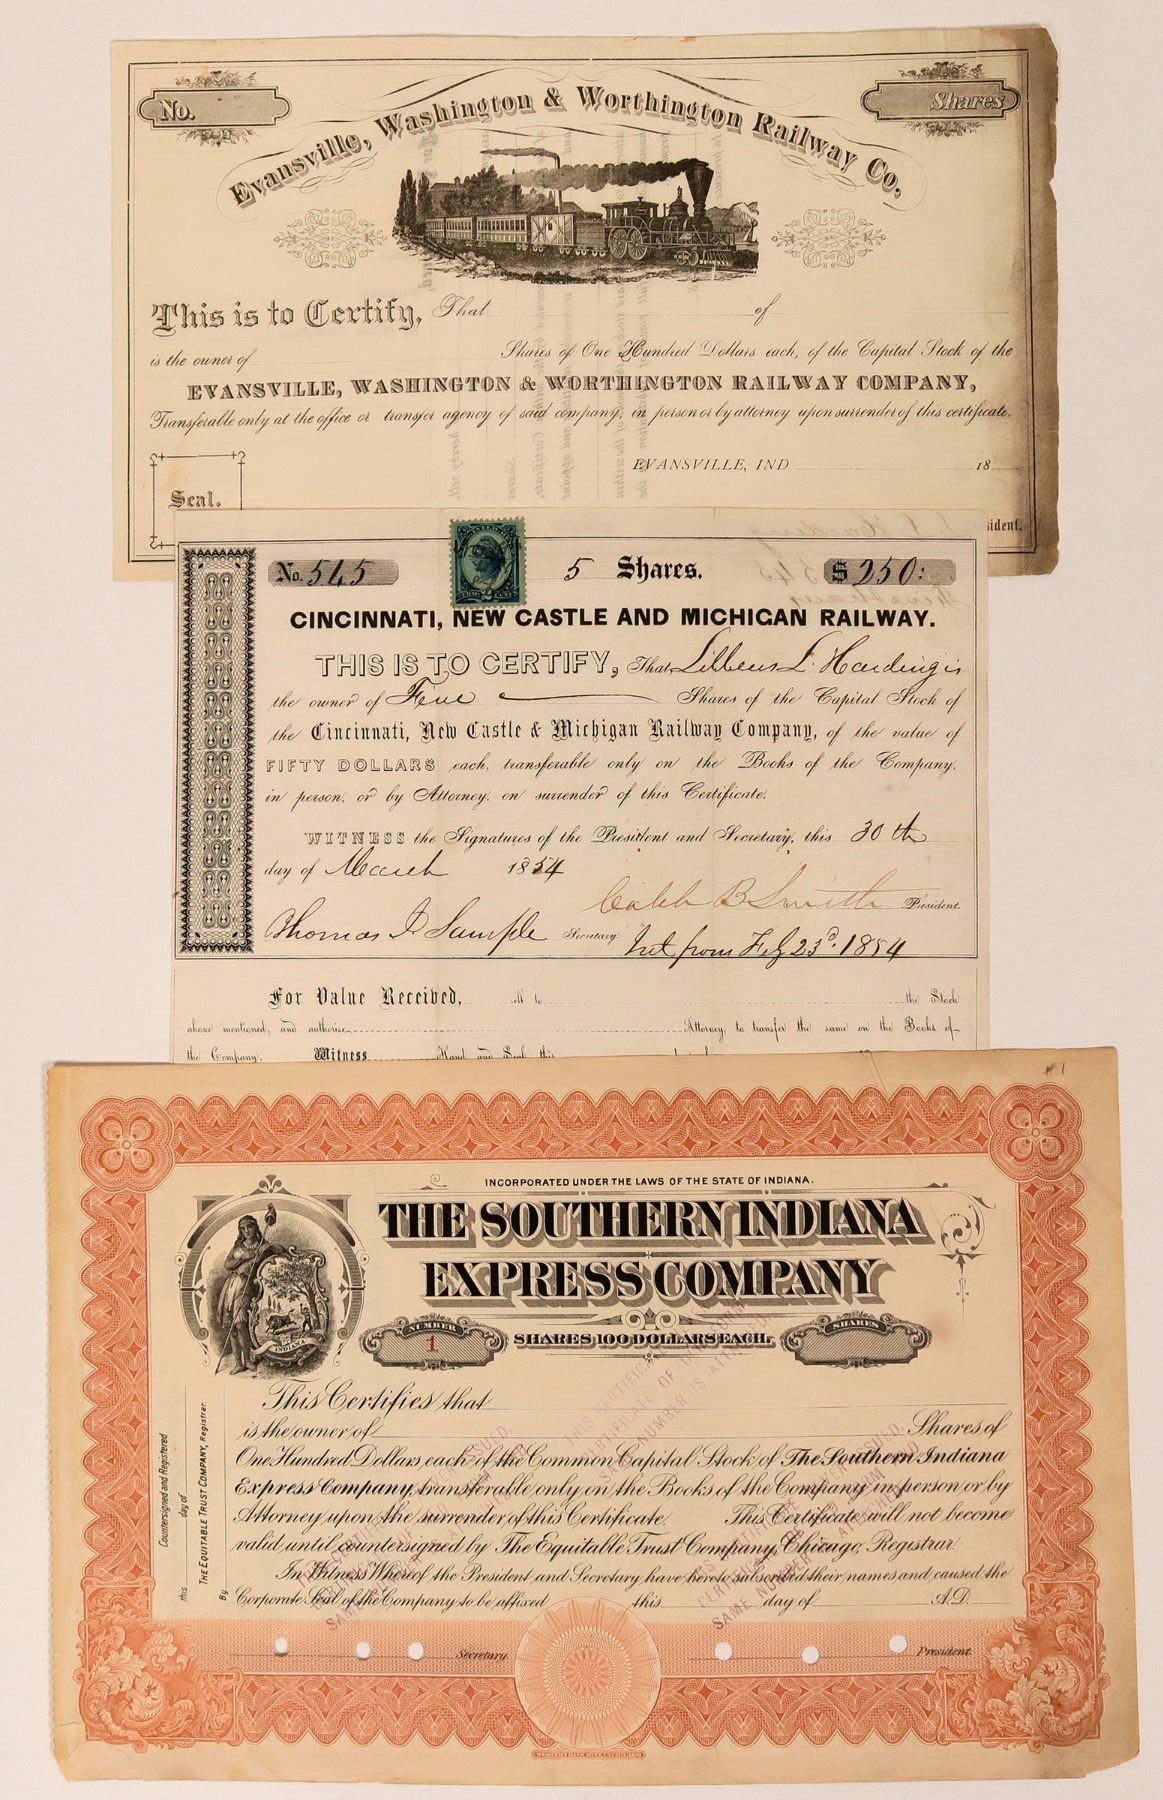 No.
Shares
Evansville, Washington & Worthington Railway Co.
This is to Certify, That of
is the owner of Shares of One Hundred Dollars each, of the Capital Stock of the
EVANSVILLE, WASHINGTON & WORTHINGTON RAILWAY COMPANY,
Transferable only at the office or transfer agency of said company, in person or by attorney upon surrender of this certificate.
EVANSVILLE, IND 18
Seal.
sident.
No. 545 5 Shares. $ 250:
CINCINNATI, NEW CASTLE AND MICHIGAN RAILWAY.
THIS IS TO CERTIFY, That Libbeus L. Harding is
the owner of Five Shares of the Capital Stock of
the Cincinnati, New Castle & Michigan Railway Company, of the value of
FIFTY DOLLARS each, transferable only on the Books of the Company,
in person, or by Attorney, on surrender of this Certificate.
WITNESS the Signatures of the President and Secretary, this 30th
day of March 1854
Caleb B Smith President.
Thomas J Sample Secretary.
Int from Feb 23d. 1854
For Value Received, sell to the Stock
above mentioned, and authorise Attorney, to transfer the same on the Books of
the Company. Witness Hand and Seal this
#1
INCORPORATED UNDER THE LAWS OF THE STATE OF INDIANA.
THE SOUTHERN INDIANA
EXPRESS COMPANY
NUMBER
1
SHARES 100 DOLLARS EACH.
SHARES
INDIANA
This Certifies that
is the owner of Shares of
One Hundred Dollars each of the Common Capital Stock of The Southern Indiana
Express Company, transferable only on the Books of the Company in person or by
Attorney upon the surrender of this Certificate. This Certificate will not become
valid until countersigned by The Equitable Trust Company, Chicago, Registrar.
In Witness Whereof the President and Secretary have hereto subscribed their names and caused the
Corporate Seal of the Company to be affixed this day of A.D.
Secretary. President.
Countersigned and Registered
this day of
THE EQUITABLE TRUST COMPANY, Registrar.
By
WESTERN BANK NOTE CO. CHICAGO